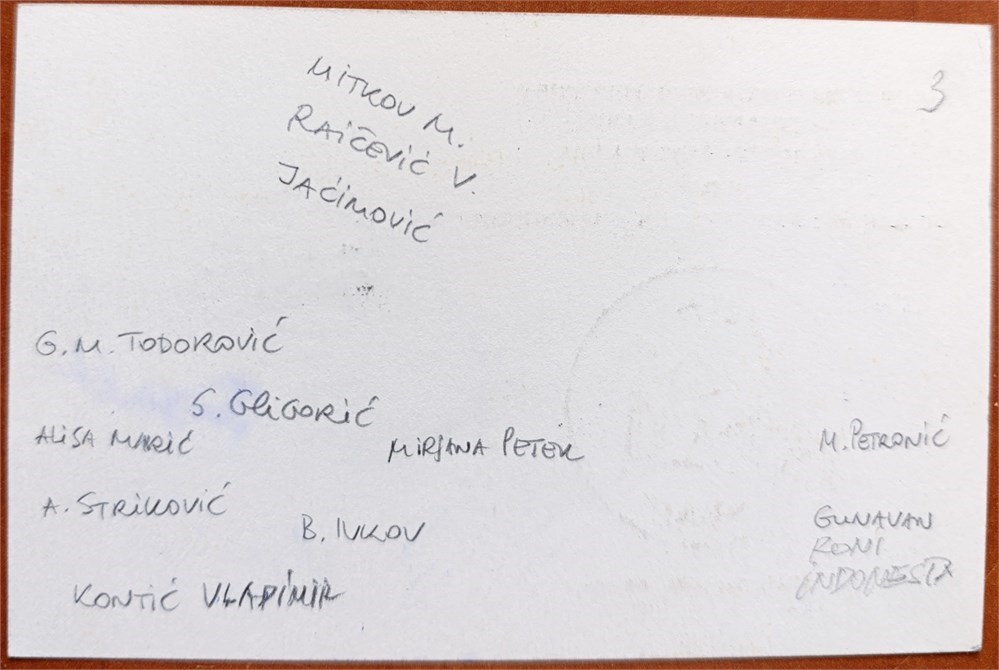 3
MITKOV M.
RAIČEVIĆ V.
JAĆIMOVIĆ
G.M. TODOROVIĆ
S. GLIGORIĆ
ALISA MARIĆ
MIRJANA PETEK
M. PETRONIĆ
A. STRIKOVIĆ
B. IVKOV
GUNAVAN
RONI
INDONESIA
KONTIĆ VLADIMIR